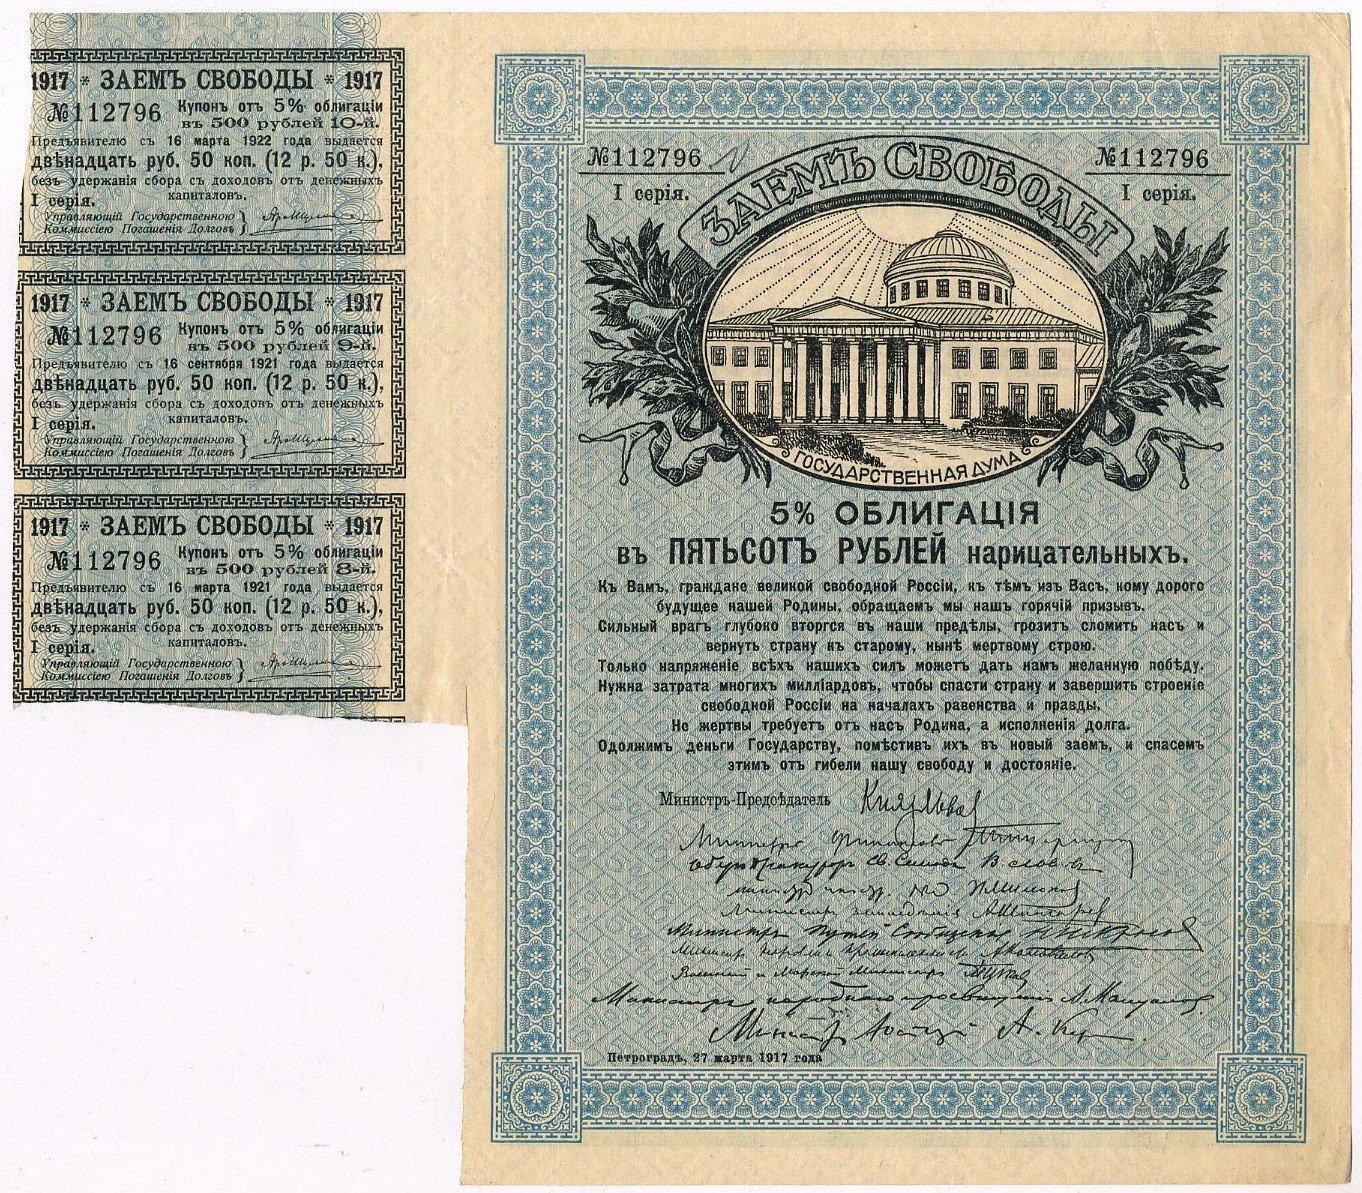 1917 * ЗАЕМЪ СВОБОДЫ * 1917
№112796 Купонъ отъ 5% облигаціи
въ 500 рублей 10-й.
Предъявителю съ 16 марта 1922 года выдается
двѣнадцать руб. 50 коп. (12 р. 50 к.),
безъ удержанія сбора съ доходовъ отъ денежныхъ
капиталовъ.
I серія.
Управляющій Государственною
Коммиссіею Погашенія Долговъ
1917 * ЗАЕМЪ СВОБОДЫ * 1917
№112796 Купонъ отъ 5% облигаціи
въ 500 рублей 9-й.
Предъявителю съ 16 сентября 1921 года выдается
двѣнадцать руб. 50 коп. (12 р. 50 к.),
безъ удержанія сбора съ доходовъ отъ денежныхъ
капиталовъ.
I серія.
Управляющій Государственною
Коммиссіею Погашенія Долговъ
1917 * ЗАЕМЪ СВОБОДЫ * 1917
№112796 Купонъ отъ 5% облигаціи
въ 500 рублей 8-й.
Предъявителю съ 16 марта 1921 года выдается
двѣнадцать руб. 50 коп. (12 р. 50 к.),
безъ удержанія сбора съ доходовъ отъ денежныхъ
капиталовъ.
I серія.
Управляющій Государственною
Коммиссіею Погашенія Долговъ
№112796
I серія.
ЗАЕМЪ СВОБОДЫ
№112796
I серія.
ГОСУДАРСТВЕННАЯ ДУМА
5% ОБЛИГАЦІЯ
въ ПЯТЬСОТЪ РУБЛЕЙ нарицательныхъ.
Къ Вамъ, граждане великой свободной Россіи, къ тѣмъ изъ Васъ, кому дорого
будущее нашей Родины, обращаемъ мы нашъ горячій призывъ.
Сильный врагъ глубоко вторгся въ наши предѣлы, грозитъ сломить насъ и
вернуть страну къ старому, нынѣ мертвому строю.
Только напряженіе всѣхъ нашихъ силъ можетъ дать намъ желанную побѣду.
Нужна затрата многихъ милліардовъ, чтобы спасти страну и завершить строеніе
свободной Россіи на началахъ равенства и правды.
Не жертвы требуетъ отъ насъ Родина, а исполненія долга.
Одолжимъ деньги Государству, помѣстивъ ихъ въ новый заемъ, и спасемъ
этимъ отъ гибели нашу свободу и достояніе.
Министръ-Предсѣдатель Князь Львов
Министръ Финансовъ
Оберъ Прокуроръ Св. Синода В. Львовъ
Министръ земледѣлія А. Шингарев
Министръ Путей Сообщенія Н. Некрасов
Министръ торговли и промышленности А. Коновалов
Военный и Морской Министръ А. Гучков
Министръ народнаго просвѣщенія А. Мануйлов
Министръ Юстиціи А. Кер
Петроградъ, 27 марта 1917 года